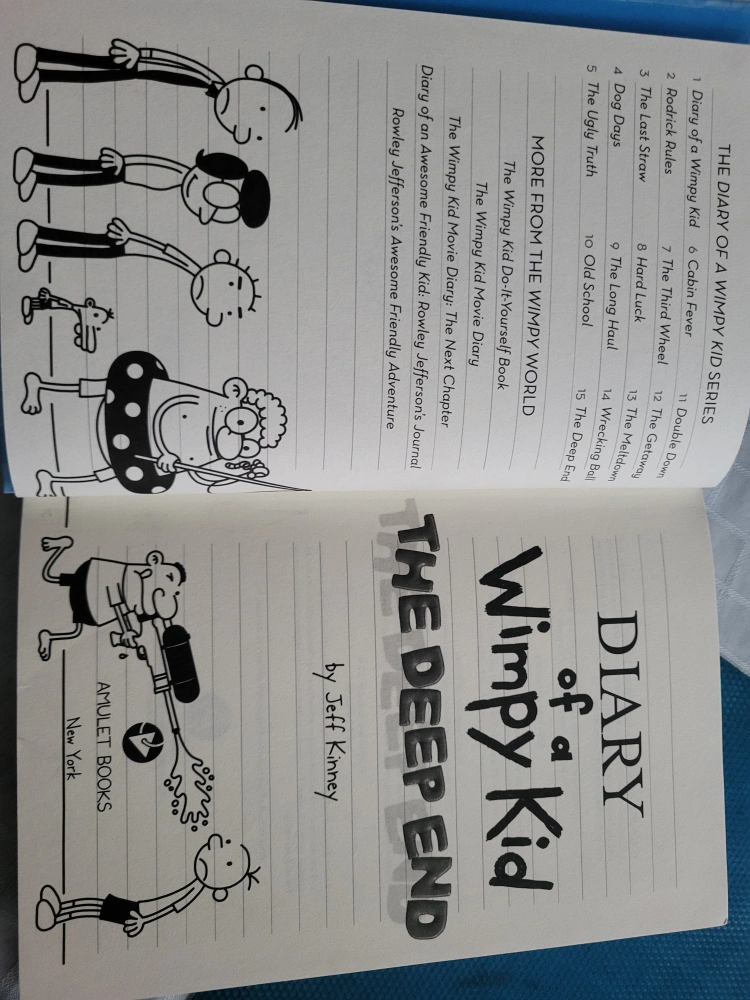 THE DIARY OF A WIMPY KID SERIES
1 Diary of a Wimpy Kid 6 Cabin Fever 11 Double Down
2 Rodrick Rules 7 The Third Wheel 12 The Getaway
3 The Last Straw 8 Hard Luck 13 The Meltdown
4 Dog Days 9 The Long Haul 14 Wrecking Ball
5 The Ugly Truth 10 Old School 15 The Deep End
MORE FROM THE WIMPY WORLD
The Wimpy Kid Do-It-Yourself Book
The Wimpy Kid Movie Diary
The Wimpy Kid Movie Diary: The Next Chapter
Diary of an Awesome Friendly Kid: Rowley Jefferson's Journal
Rowley Jefferson's Awesome Friendly Adventure
DIARY
of a
Wimpy Kid
THE DEEP END
by Jeff Kinney
AMULET BOOKS
New York